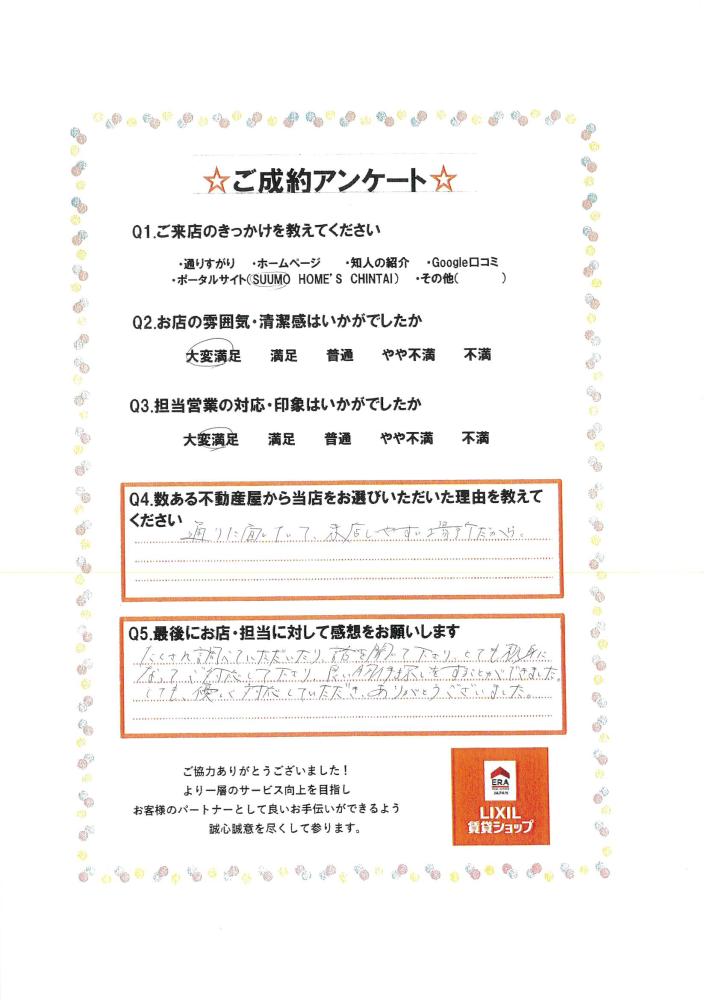 ☆ご成約アンケート☆
Q1.ご来店のきっかけを教えてください
・通りすがり ・ホームページ ・知人の紹介 ・Google口コミ
・ポータルサイト(SUUMO HOME'S CHINTAI) ・その他( )
Q2.お店の雰囲気・清潔感はいかがでしたか
大変満足 満足 普通 やや不満 不満
Q3.担当営業の対応・印象はいかがでしたか
大変満足 満足 普通 やや不満 不満
Q4.数ある不動産屋から当店をお選びいただいた理由を教えて
ください
通りに面していて、来店しやすい場所だから。
Q5.最後にお店・担当に対して感想をお願いします
たくさん調べていただいたり、話を聞いて下さり、とても親身に
なってご対応して下さり、良いお部屋探しをすることができました。
とても、優しく対応していただき、ありがとうございました。
ご協力ありがとうございました！
より一層のサービス向上を目指し
お客様のパートナーとして良いお手伝いができるよう
誠心誠意を尽くして参ります。
ERA
JAPAN
LIXIL
賃貸ショップ